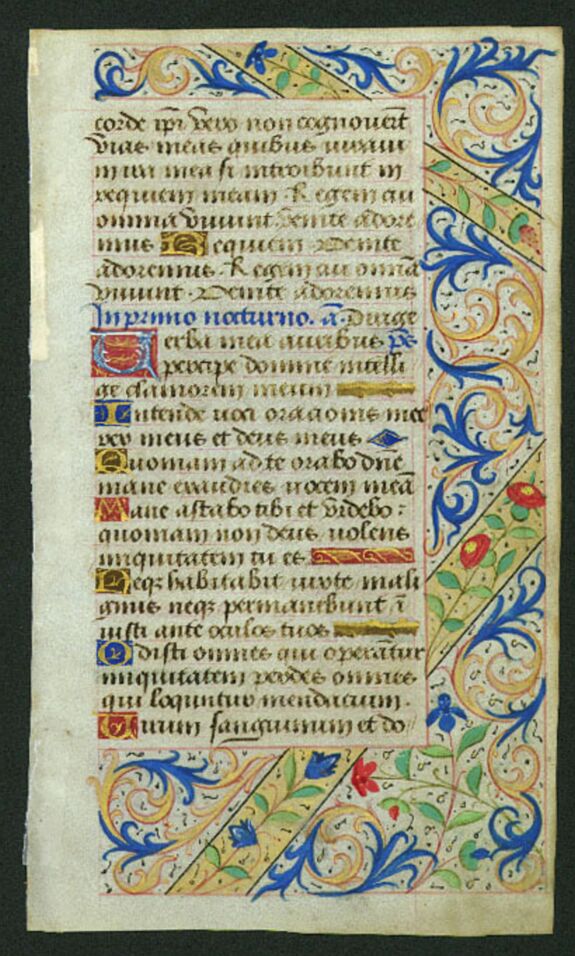 corde ipi vero non cognouerūt
vias meas quibus iuraui
in ira mea si introibunt in
requiem meam Regem cui
omnia viuunt Venite adore
mus Requiem Venite
adoremus. Regem cui omnia
viuunt. Venite adoremus
In primo nocturno. a. Dirige
Verba mea auribus ps
percipe domine intelli
ge clamorem meum
Intende uoci orationis mee
rex meus et deus meus
Quoniam ad te orabo dn̄e
mane exaudies uocem meā
Mane astabo tibi et videbo:
quoniam non deus uolens
iniquitatem tu es
Neqꝫ habitabit iuxte mali
gnus neqꝫ permanebunt ī
iusti ante oculos tuos
Odisti omnes qui operātur
iniquitatem perdes omnes
qui loquntur mendacium.
Virum sanguinum et do